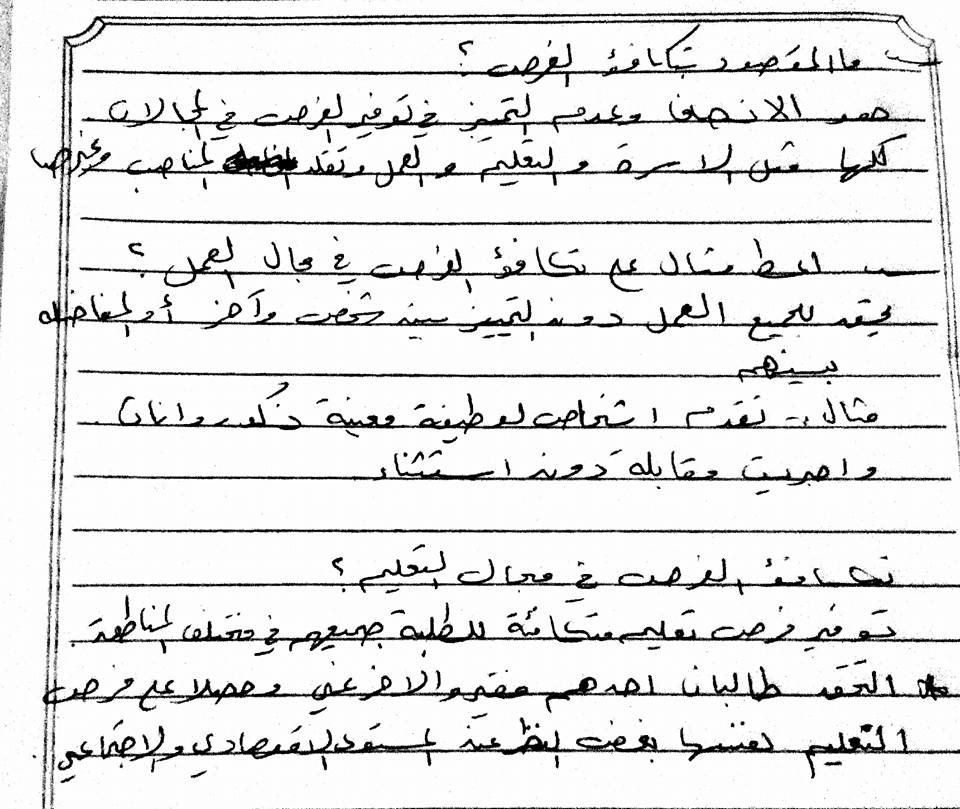 س ما المقصود بتكافؤ الفرص ؟
هو الانصاف وعدم التميز في توفير الفرص في المجالات
كلها مثل الاسرة والتعليم والعمل وتقلد المناصب وغيرها
س اعط مثال على تكافؤ الفرص في مجال العمل ؟
يحق للجميع العمل دون التمييز بين شخص وآخر أو المفاضله
بينهم
مثال :- تقدم اشخاص لوظيفة معينة ذكور واناث
واجريت مقابلة دون استثناء
تكافؤ الفرص في مجال التعليم ؟
توفير فرص تعليم متكافئة للطلبة جميعهم في مختلف المناطق
التحق طالبان احدهم فقير والاخر غني وحصلا على فرص
التعليم نفسها بغض النظر عن المستوى الاقتصادي والاجتماعي .